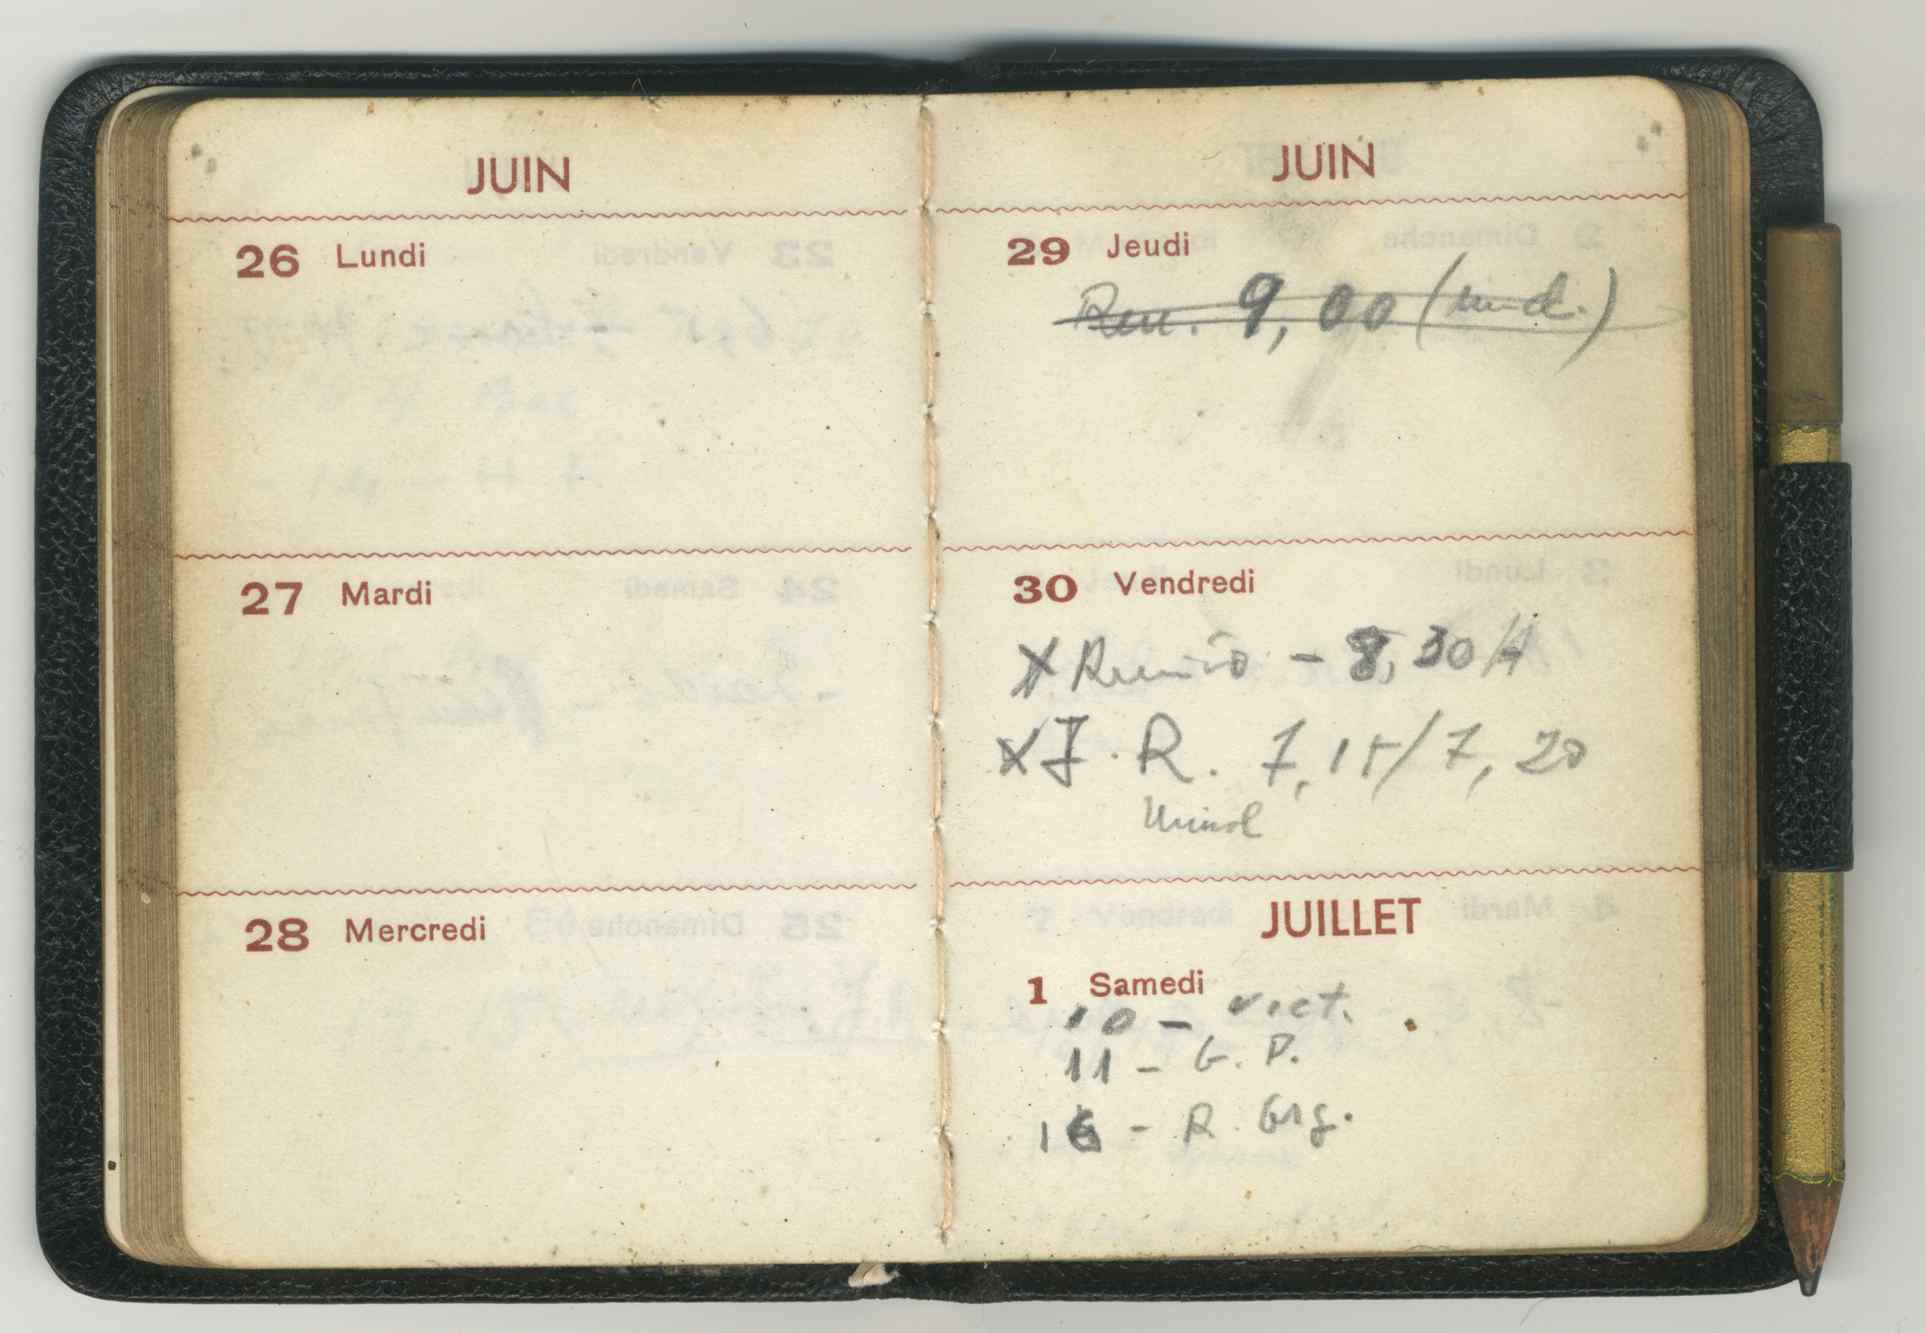 JUIN
26 Lundi
27 Mardi
28 Mercredi
JUIN
29 Jeudi
Reu. 9,00
30 Vendredi
X Reunião - 8,30 H
X J. R. 7,15/7,20
JUILLET
1 Samedi
10 - vict.
11 - G. P.
16 - R. Grg.